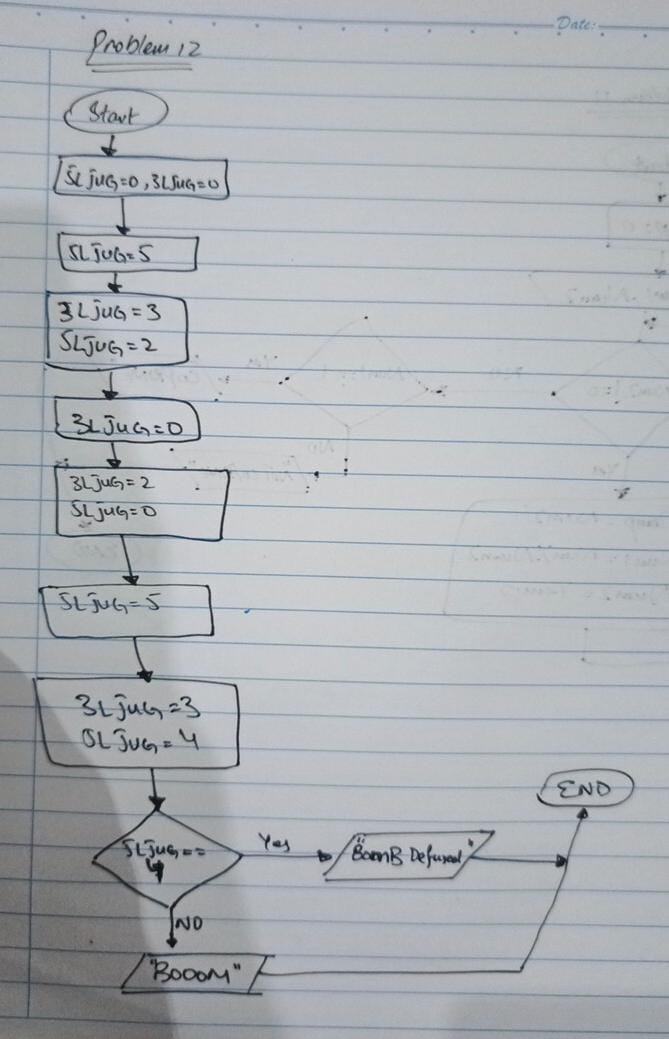 Date:
Problem 12
Start
5LJUG=0, 3LJUG=0
5LJUG=5
3LJUG=3
5LJUG=2
3LJUG=0
3LJUG=2
5LJUG=0
5LJUG=5
3LJUG=3
5LJUG=4
5LJUG==
4
Yes
"BomB Defused"
END
NO
"BOOOM"